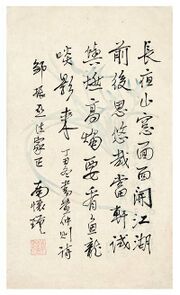 長夜山窗面面開江湖
前後思悠哉當軒試
與燃高燭要看魚龍
啖影來 丁丑冬書黃仲則詩
鄒振亞法家正 南懷瑾